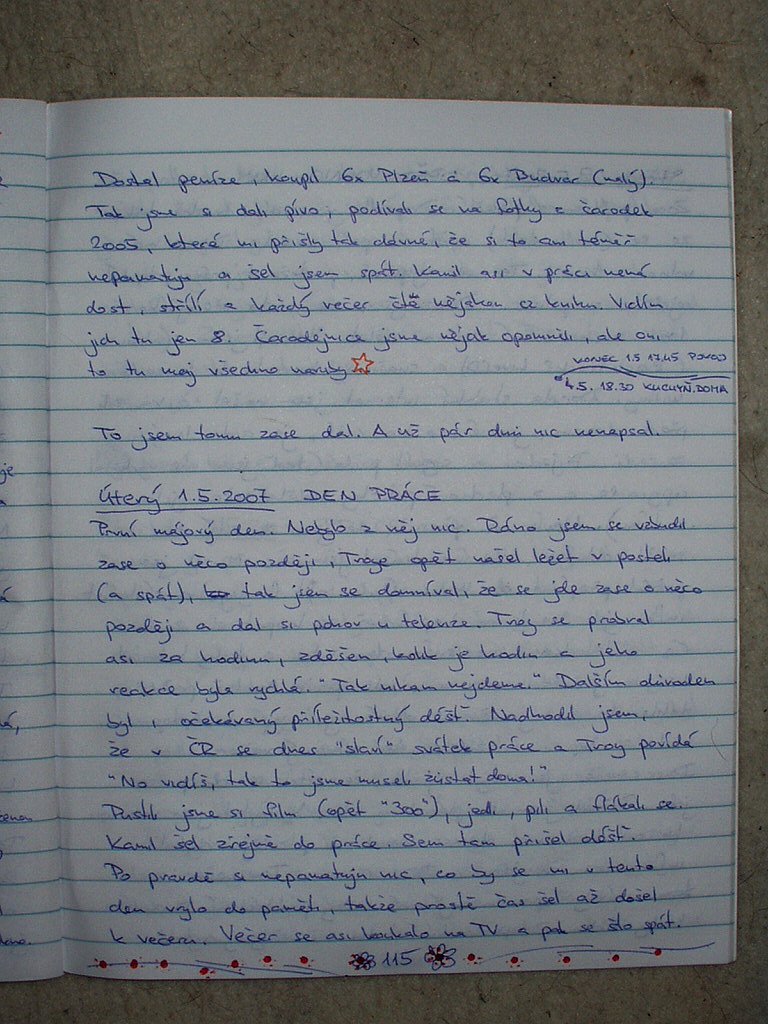 Dostal peníze, koupil 6x Plzeň a 6x Budvar (malý).
Tak jsme si dali pivo, podívali se na fotky z čarodek
2005, které mi přišly tak dávné, že si to ani téměř
nepamatuju a šel jsem spát. Kamil asi v práci nemá
dost, střílí a každý večer čte nějakou cz knihu. Vidím
jich tu jen 8. Čarodějnice jsme nějak opomněli, ale oni
to tu maj všechno naruby
KONEC 1.5 17.45 POKOJ
4.5. 18.30 KUCHYŇ.DOMA
To jsem tomu zase dal. A už pár dnů nic nenapsal.
Úterý 1.5.2007 DEN PRÁCE
První májový den. Nebylo z něj nic. Ráno jsem se vzbudil
zase o něco později, Troye opět našel ležet v posteli
(a spát), tak jsem se domníval, že se jde zase o něco
později a dal si pohov u televize. Troy se probral
asi za hodinu, zděšen, kolik je hodin a jeho
reakce byla rychlá. "Tak nikam nejdeme." Dalším důvodem
byl i očekávaný příležitostný déšť. Nadhodil jsem,
že v ČR se dnes "slaví" svátek práce a Troy povídá
"No vidíš, tak to jsme museli zůstat doma!"
Pustili jsme si film (opět "300"), jedli, pili a flákali se.
Kamil šel zřejmě do práce. Sem tam přišel déšť.
Po pravdě si nepamatuju nic, co by se mi v tento
den vrylo do paměti, takže prostě čas šel až došel
k večeru. Večer se asi koukalo na TV a pak se šlo spát.
115